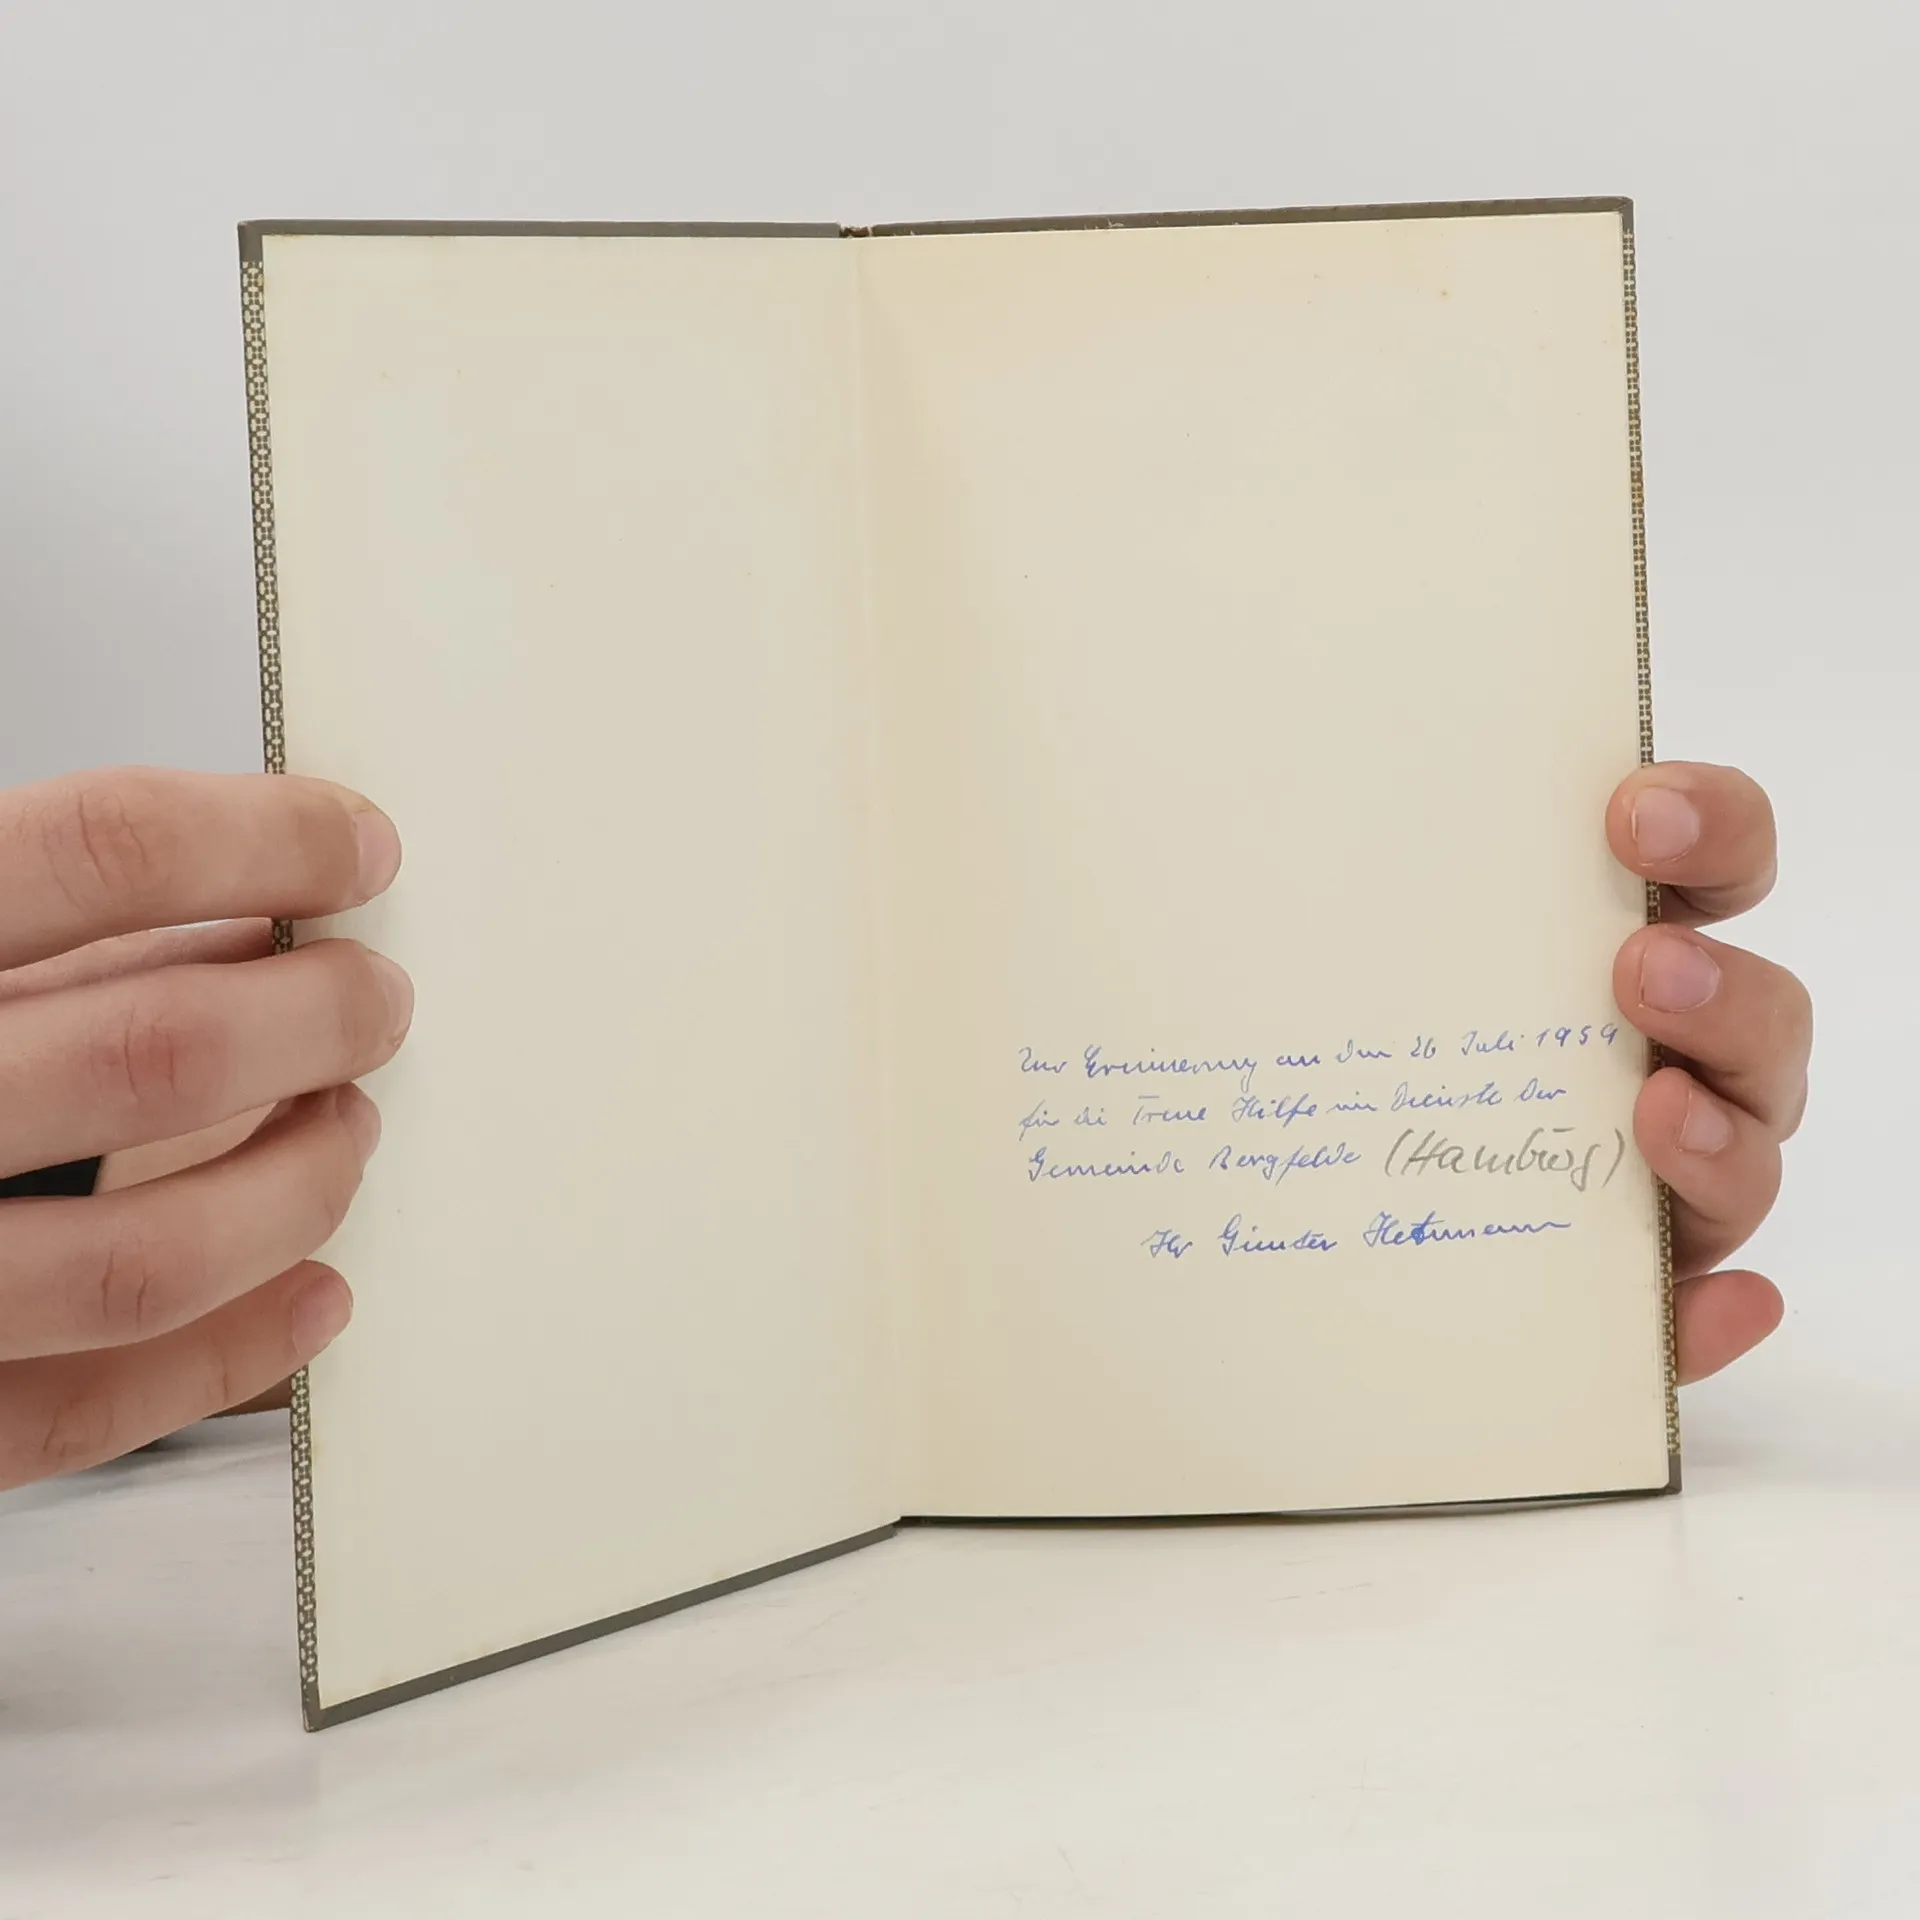 Zur Erinnerung an den 26 Juli 1959
für die Treue Hilfe im Dienste der
Gemeinde Bergfelde (Hamburg)
Ihr Günter Hetmann